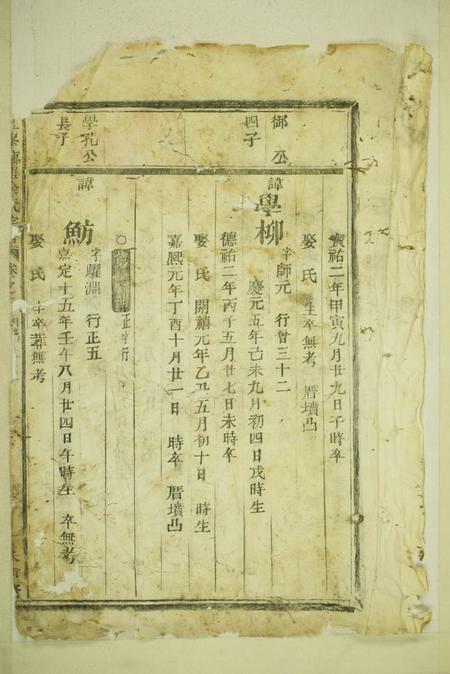 寶祐二年甲寅九月廿九日子時卒
娶 氏 生卒無考 厝墳凸
御 公
四子
諱 學柳 字師元 行曾三十二
慶元五年己未九月初四日戌時生
德祐二年丙子五月廿七日未時卒
娶 氏 開禧元年乙丑五月初十日 時生
嘉熙元年丁酉十月廿一日 時卒 厝墳凸
正字行
學孔公
長子
諱 魴 字躍淵 行正五
嘉定十五年壬午八月廿四日午時生 卒無考
娶 氏 生卒葬無考